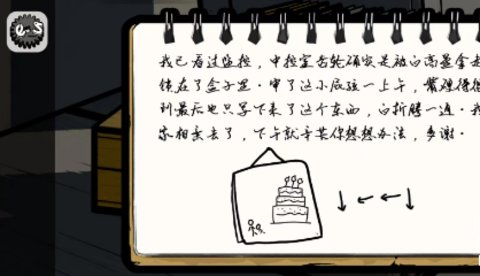 我已看过监控，中控室齿轮确实是被白高墨拿走
锁在了盒子里。审了这小屁孩一上午，嘴硬得很
到最后也只写下来了这个东西，白折腾一通。我
东相亲去了，下午就辛苦你想想办法，多谢。